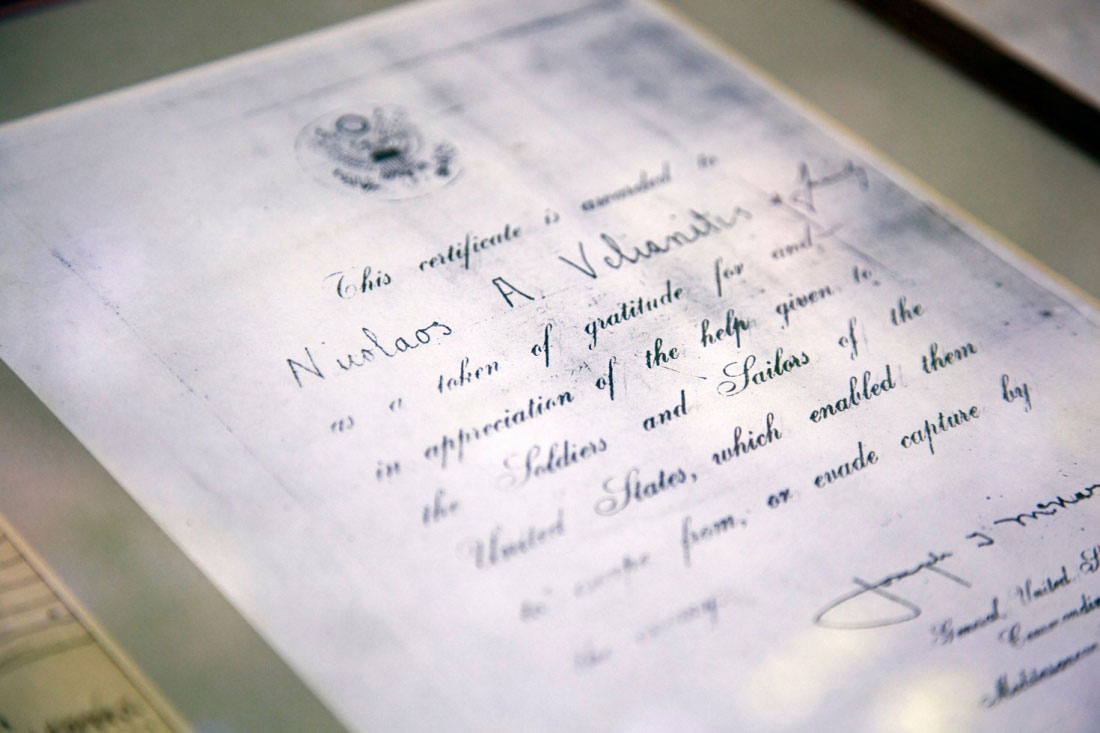 This certificate is awarded to
Nicolaos A. Velianitis &
as a token of gratitude for and
in appreciation of the help given to
the Soldiers and Sailors of the
United States, which enabled them
to escape from, or evade capture by
the enemy.
Joseph T
General, United
Mediterranean